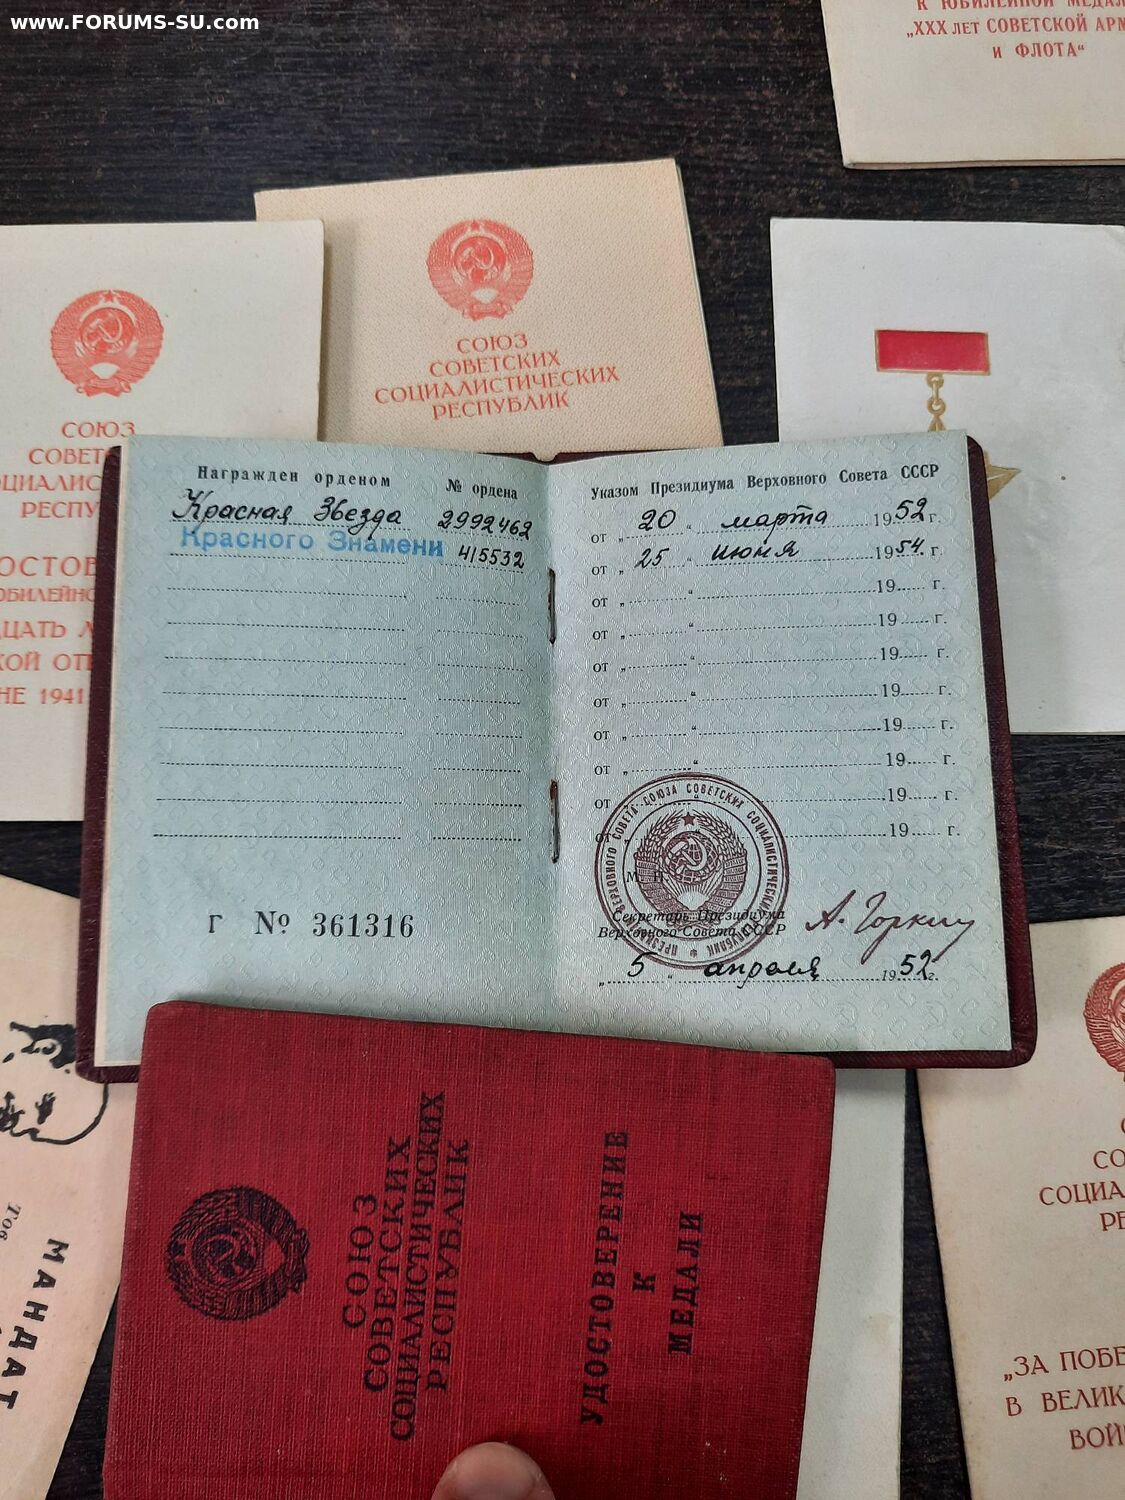 www.FORUMS-SU.com
К ЮБИЛЕЙНОЙ МЕДАЛ
„XXX ЛЕТ СОВЕТСКОЙ АРМ
и ФЛОТА“
СОЮЗ
СОВЕТСКИХ
СОЦИАЛИСТИЧЕСКИХ
РЕСПУБЛИК
СОЮЗ
СОВЕТ
ОЦИАЛИС
РЕСПУ
ОСТОВ
ОБИЛЕЙНО
ЦАТЬ Л
КОЙ ОТЕ
НЕ 1941
Награжден орденом № ордена
Красная Звезда 2992462
Красного Знамени 415532
Г № 361316
Указом Президиума Верховного Совета СССР
от „20“ марта 1952 г.
от „25“ июня 1954 г.
от „ “ 19 г.
от „ “ 19 г.
от „ “ 19 г.
от „ “ 19 г.
от „ “ 19 г.
от „ “ 19 г.
от „ “ 19 г.
от „ “ 19 г.
ПРЕЗИДИУМ ВЕРХОВНОГО СОВЕТА СОЮЗА СОВЕТСКИХ СОЦИАЛИСТИЧЕСКИХ РЕСПУБЛИК
М. П.
Секретарь Президиума
Верховного Совета СССР
А. Горкин
„5“ апреля 1952 г.
СОЮЗ
СОВЕТСКИХ
СОЦИАЛИСТИЧЕСКИХ
РЕСПУБЛИК
УДОСТОВЕРЕНИЕ
К
МЕДАЛИ
Тов
МАНДАТ
С
СО
СОЦИА
РЕ
„ЗА ПОБЕ
В ВЕЛИК
ВОЙ